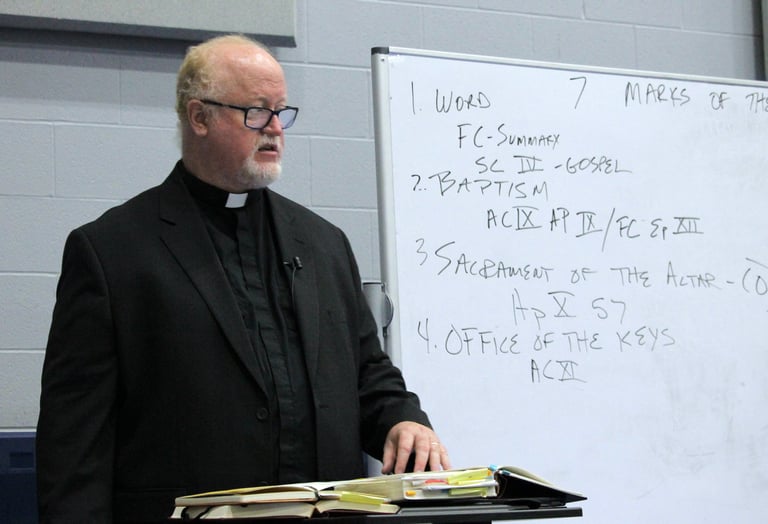 7 MARKS OF THE
1. WORD
FC-SUMMARY
SC IV - GOSPEL
2. BAPTISM
AC IX AP IX / FC Ep XII
3 SACRAMENT OF THE ALTAR - (
Ap X 57
4. OFFICE OF THE KEYS
AC XI